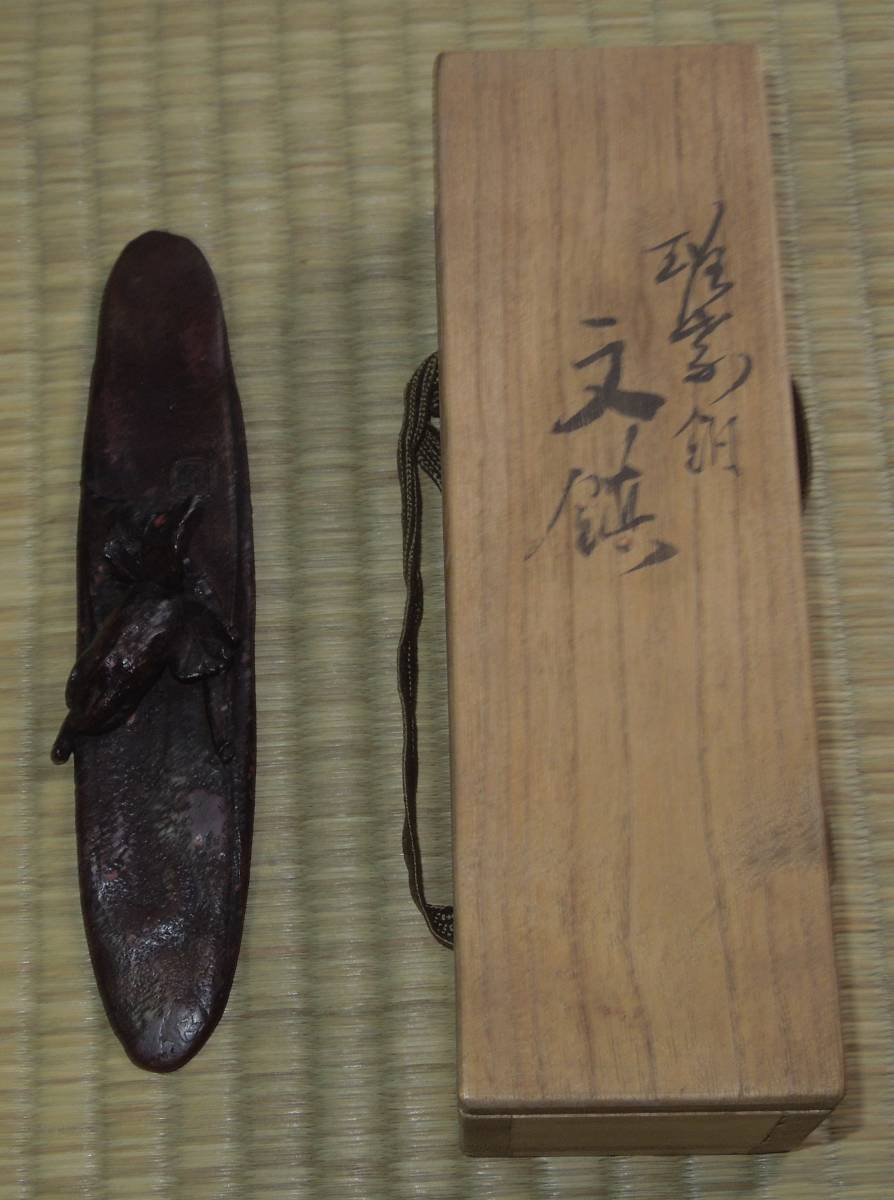 斑紫銅
文鎮